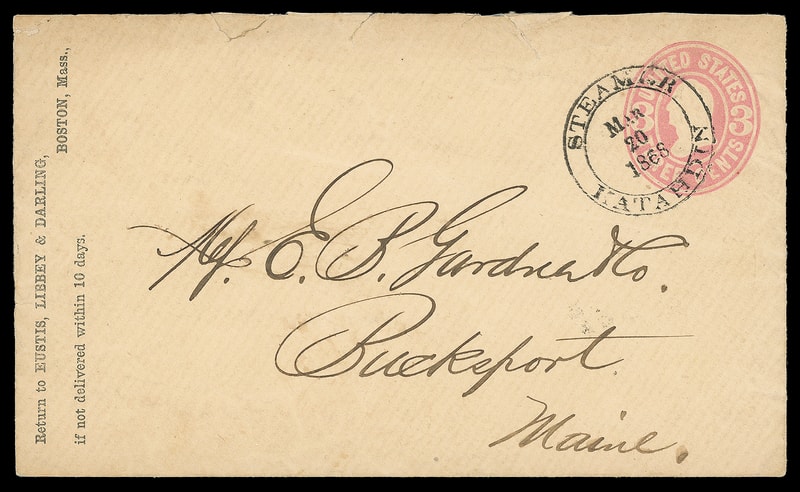 Return to EUSTIS, LIBBEY & DARLING,
BOSTON, Mass.,
if not delivered within 10 days.
STEAMER
KATAHDIN
MAR
20
1868
UNITED STATES
3 3
THREE CENTS
Mess. E. P. Gardner & Co.
Bucksport.
Maine.